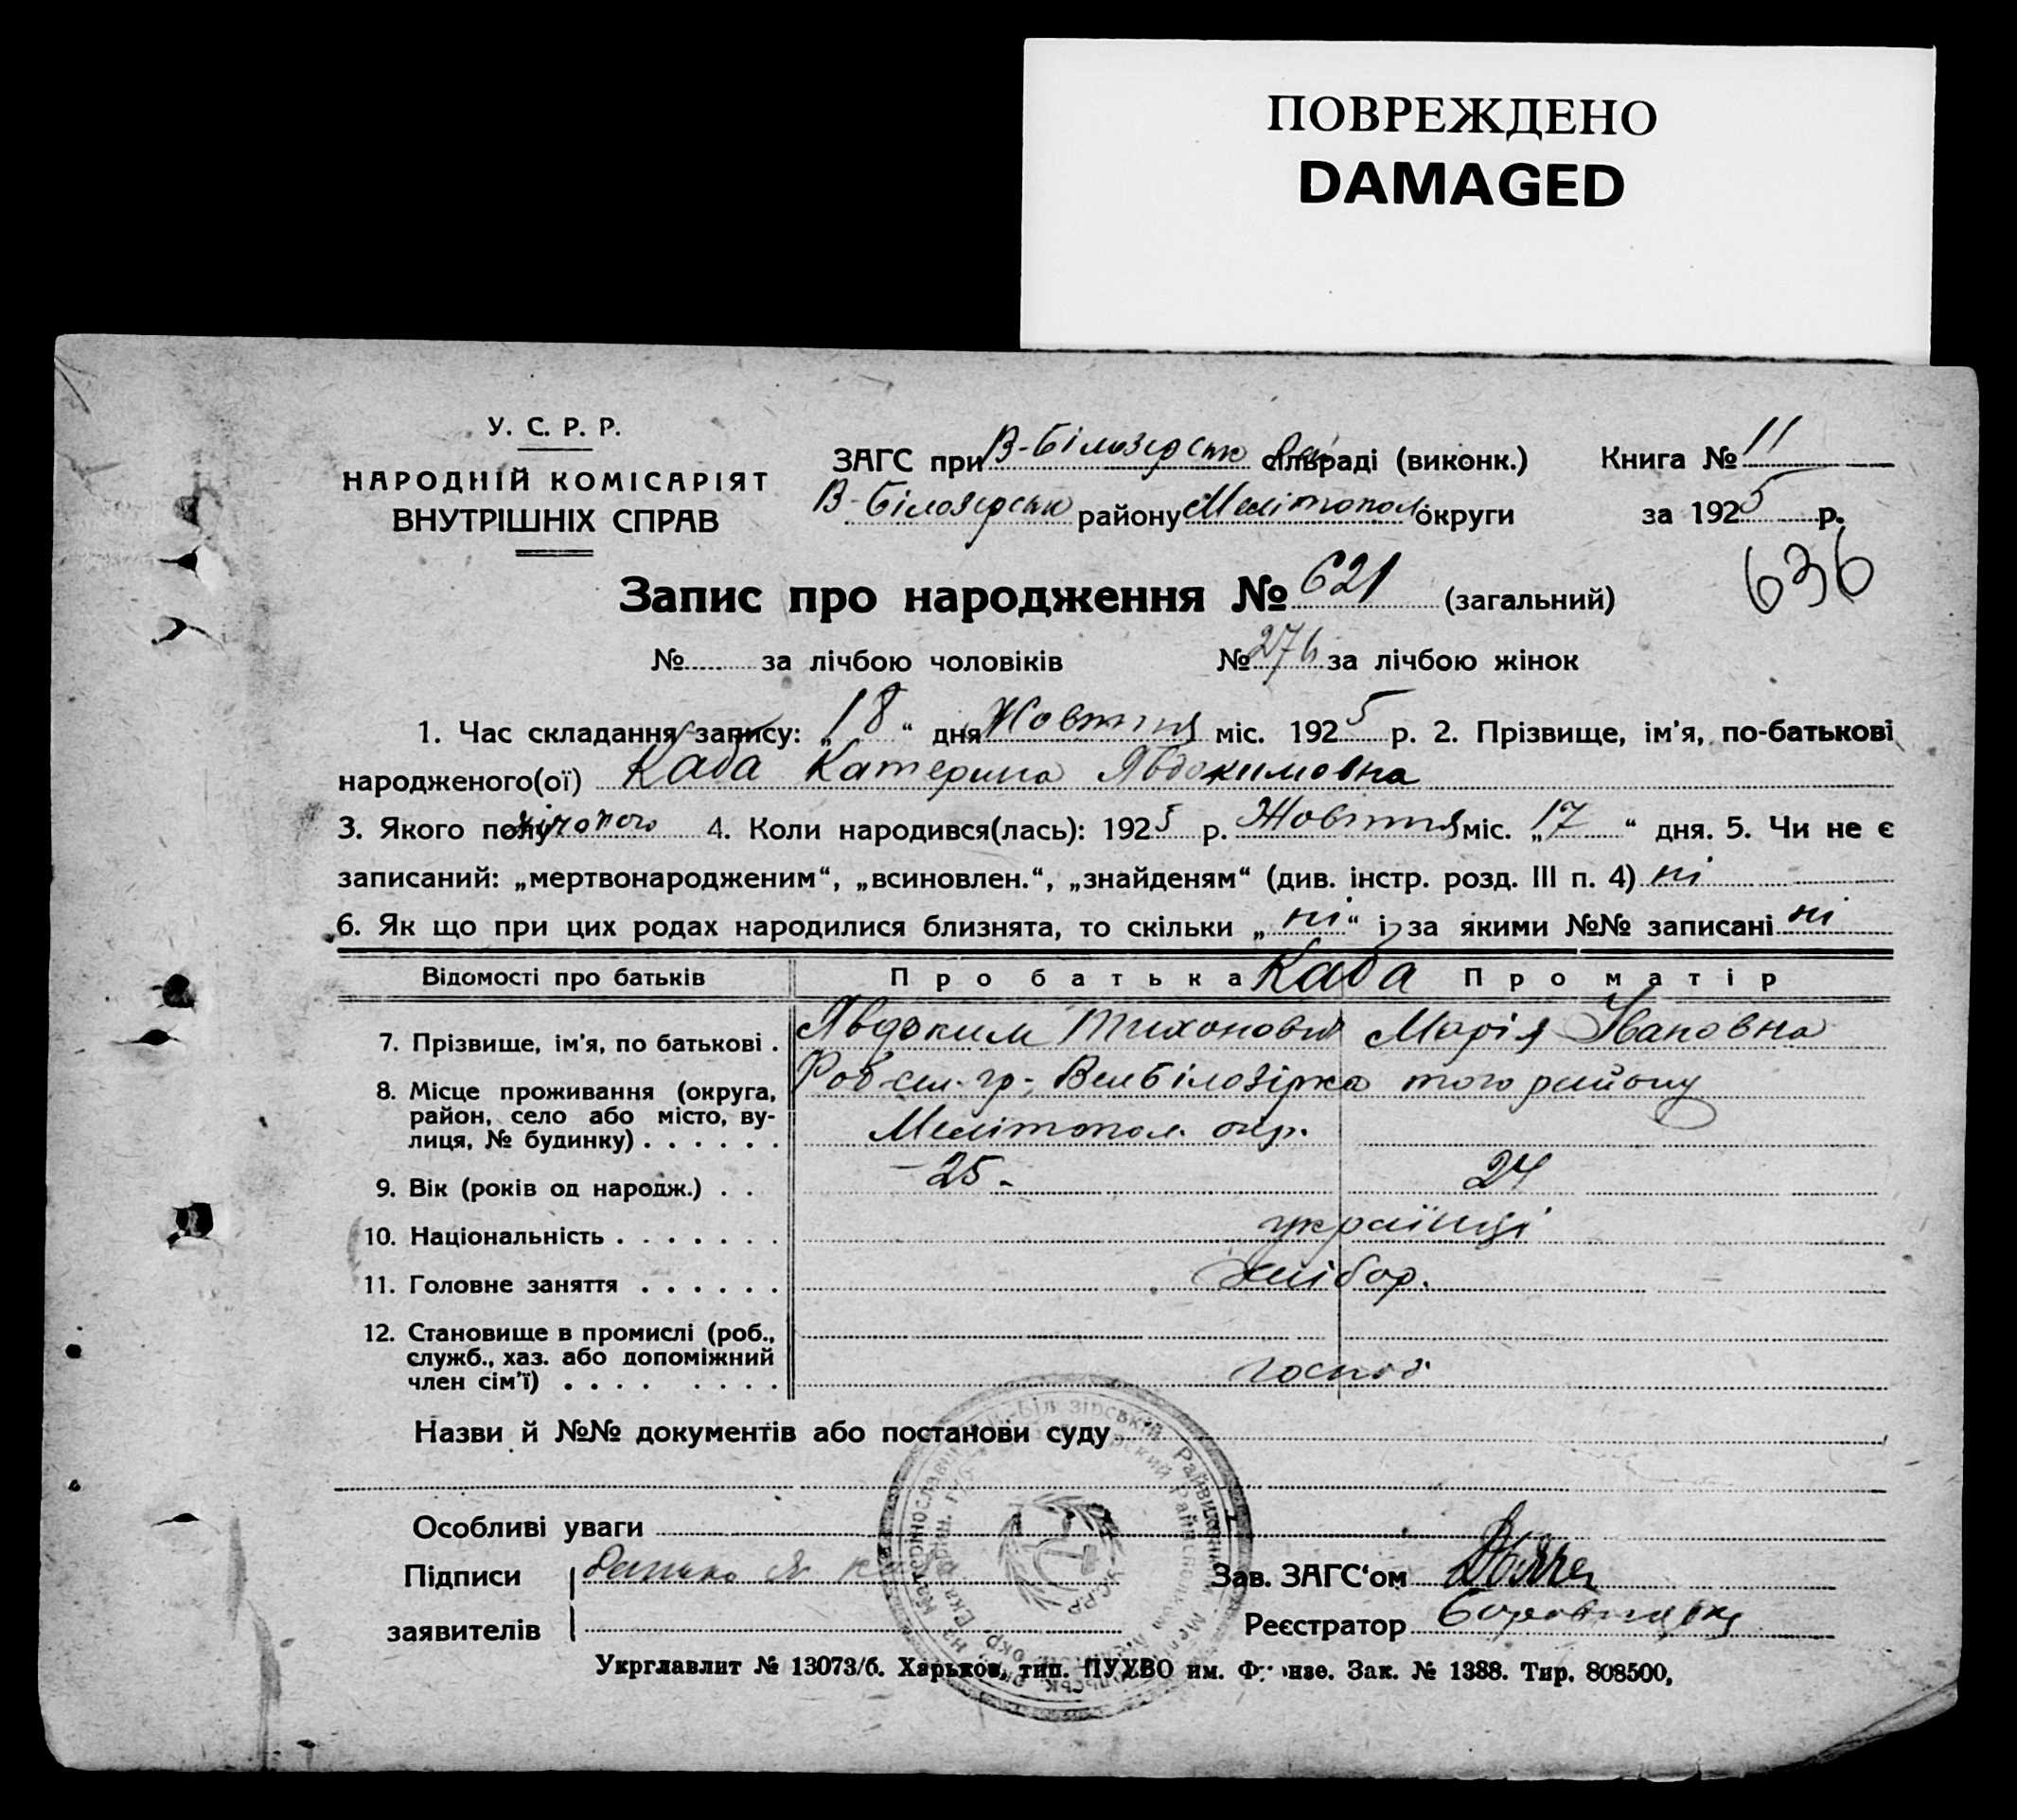 ПОВРЕЖДЕНО
DAMAGED
У. С. Р. Р.
НАРОДНІЙ КОМІСАРІЯТ
ВНУТРІШНІХ СПРАВ
ЗАГС при В-Білозерськ сільраді (виконк.)
В-Білозерськ району Мелітопол округи
Книга № 11
за 1925 р.
636
Запис про народження № 621 (загальний)
№ за лічбою чоловіків № 276 за лічбою жінок
1. Час складання запису: „18“ дня Жовтня міс. 1925 р. 2. Прізвище, ім'я, по-батькові
народженого(ої) Каба Катерина Явдокимовна
3. Якого полу жіночого 4. Коли народився(лась): 1925 р. Жовтня міс. „17“ дня. 5. Чи не є
записаний: „мертвонародженим“, „всиновлен.“, „знайденям“ (див. інстр. розд. III п. 4) ні
6. Як що при цих родах народилися близнята, то скільки „ні“ і за якими №№ записані ні
Відомості про батьків Про батька Каба Про матір
7. Прізвище, ім'я, по батькові . Явдоким Тихонович Марія Івановна
8. Місце проживання (округа, район, село або місто, вулиця, № будинку) . . . . . . Вел Білозірка того району
Мелітопол. окр.
9. Вік (років од народж.) . . 25 - 24
10. Національність . . . . . . . українці
11. Головне заняття . . . . . . хлібор.
12. Становище в промислі (роб., служб., хаз. або допоміжний член сім'ї) . . . . . . . . господ
Назви й №№ документів або постанови суду
Особливі уваги
Підписи
заявителів
Зав. ЗАГС'ом
Реєстратор
Укрглавлит № 13073/б. Харьков, тип. ПУУВО им. Фрунзе. Зак. № 1388. Тир. 808500,